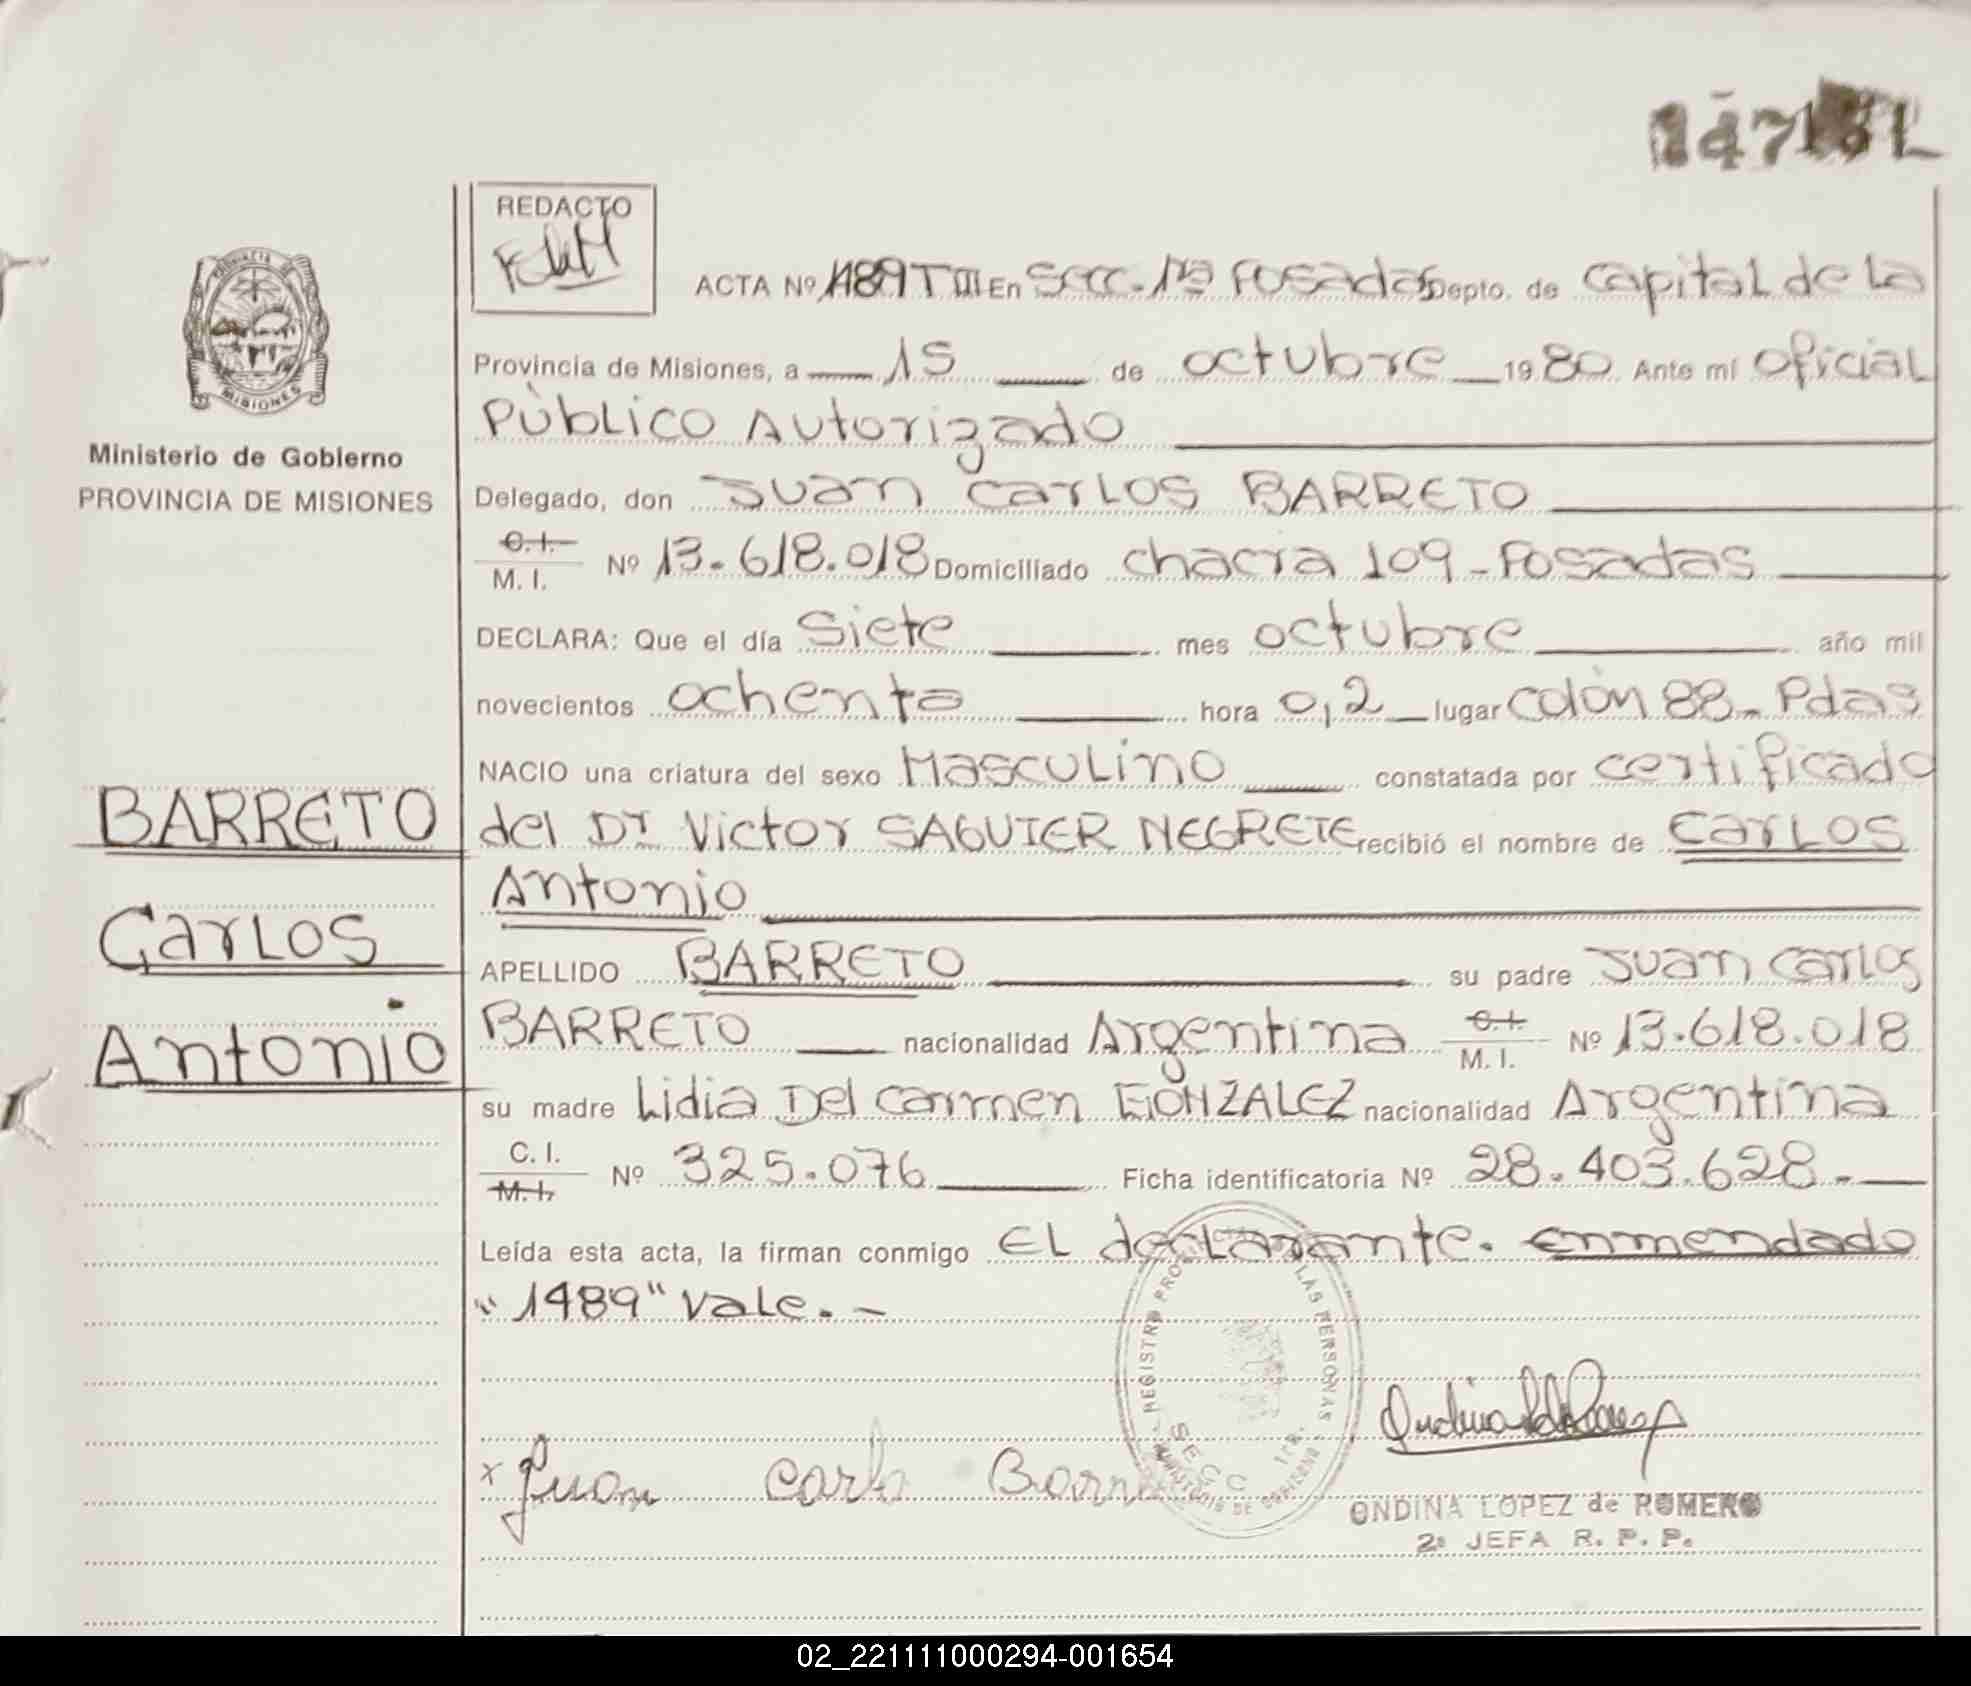 REDACTO
ACTA Nº 1489 T III En Secc. 1ª Posadas Depto. de Capital de la
Provincia de Misiones, a 15 de octubre 1980. Ante mí oficial
Público Autorizado
Ministerio de Gobierno
PROVINCIA DE MISIONES
Delegado, don Juan Carlos BARRETO
C.I.
M. I. Nº 13.618.018 Domiciliado chacra 109 - Posadas
DECLARA: Que el día siete mes octubre año mil
novecientos ochenta hora 0,2 lugar Colón 88 - Pdas
NACIO una criatura del sexo Masculino constatada por certificado
BARRETO
del Dr Victor SAGUIER NEGRETE recibió el nombre de Carlos
Antonio
Carlos
APELLIDO BARRETO su padre Juan Carlos
Antonio
BARRETO nacionalidad Argentina C.I. M. I. Nº 13.618.018
su madre Lidia Del Carmen GONZALEZ nacionalidad Argentina
C. I.
M.I. Nº 325.076 Ficha identificatoria Nº 28.403.628.-
Leída esta acta, la firman conmigo El declarante. Enmendado
"1489" Vale.-
REGISTRO LAS PERSONAS
SECC 1ra.
x Juan Carlo
ONDINA LOPEZ de ROMERO
2ª JEFA R. P. P.
02_221111000294-001654